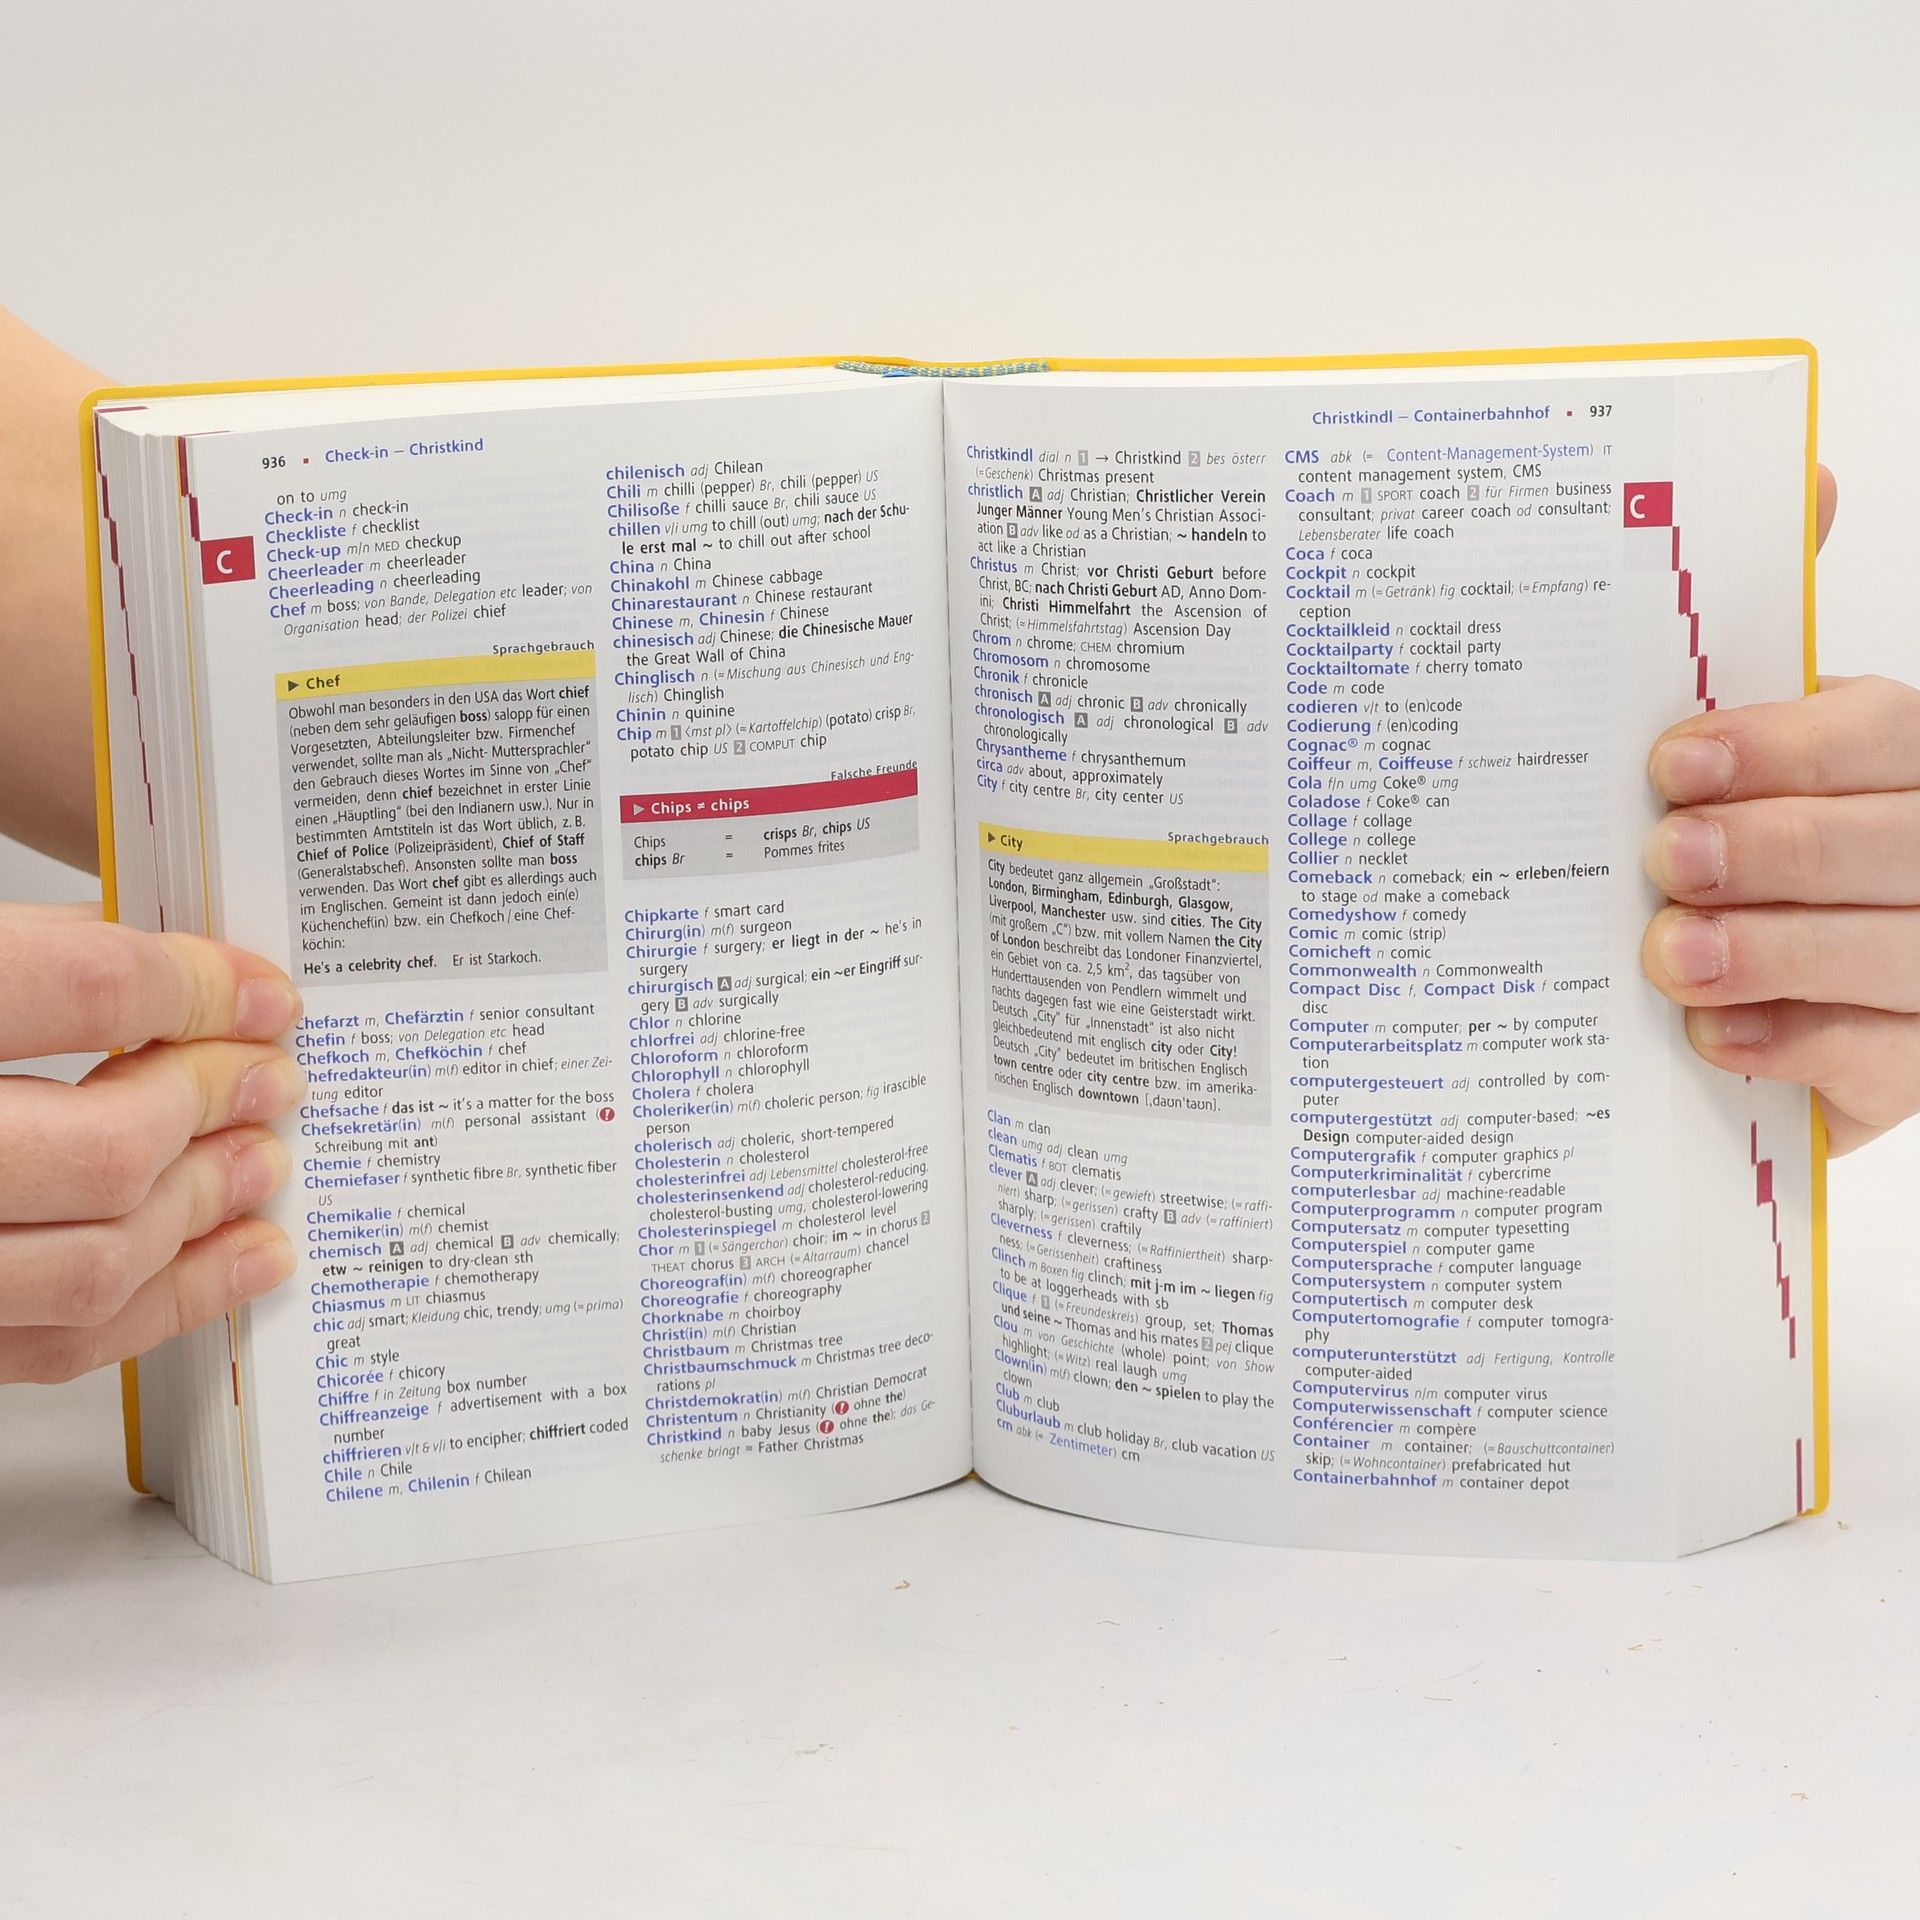 936 ▪ Check-in – Christkind
C
on to umg
Check-in n check-in
Checkliste f checklist
Check-up m/n MED checkup
Cheerleader m cheerleader
Cheerleading n cheerleading
Chef m boss; von Bande, Delegation etc leader; von
Organisation head; der Polizei chief
Sprachgebrauch
▶ Chef
Obwohl man besonders in den USA das Wort chief
(neben dem sehr geläufigen boss) salopp für einen
Vorgesetzten, Abteilungsleiter bzw. Firmenchef
verwendet, sollte man als „Nicht- Muttersprachler"
den Gebrauch dieses Wortes im Sinne von „Chef"
vermeiden, denn chief bezeichnet in erster Linie
einen „Häuptling" (bei den Indianern usw.). Nur in
bestimmten Amtstiteln ist das Wort üblich, z. B.
Chief of Police (Polizeipräsident), Chief of Staff
(Generalstabschef). Ansonsten sollte man boss
verwenden. Das Wort chef gibt es allerdings auch
im Englischen. Gemeint ist dann jedoch ein(e)
Küchenchef(in) bzw. ein Chefkoch / eine Chef-
köchin:
He's a celebrity chef. Er ist Starkoch.
Chefarzt m, Chefärztin f senior consultant
Chefin f boss; von Delegation etc head
Chefkoch m, Chefköchin f chef
hefredakteur(in) m(f) editor in chief; einer Zei-
tung editor
Chefsache f das ist ~ it's a matter for the boss
Chefsekretär(in) m(f) personal assistant (!
Schreibung mit ant)
Chemie f chemistry
Chemiefaser f synthetic fibre Br, synthetic fiber
US
Chemikalie f chemical
Chemiker(in) m(f) chemist
chemisch A adj chemical B adv chemically;
etw ~ reinigen to dry-clean sth
Chemotherapie f chemotherapy
Chiasmus m LIT chiasmus
chic adj smart; Kleidung chic, trendy; umg (≈ prima)
great
Chic m style
Chicorée f chicory
Chiffre f in Zeitung box number
Chiffreanzeige f advertisement with a box
number
chiffrieren v/t & v/i to encipher; chiffriert coded
Chile n Chile
Chilene m, Chilenin f Chilean
chilenisch adj Chilean
Chili m chilli (pepper) Br, chili (pepper) US
Chilisoße f chilli sauce Br, chili sauce US
chillen v/i umg to chill (out) umg; nach der Schu-
le erst mal ~ to chill out after school
China n China
Chinakohl m Chinese cabbage
Chinarestaurant n Chinese restaurant
Chinese m, Chinesin f Chinese
chinesisch adj Chinese; die Chinesische Mauer
the Great Wall of China
Chinglisch n (≈ Mischung aus Chinesisch und Eng-
lisch) Chinglish
Chinin n quinine
Chip m 1 ⟨mst pl⟩ (≈ Kartoffelchip) (potato) crisp Br,
potato chip US 2 COMPUT chip
Falsche Freunde
▶ Chips ≠ chips
Chips = crisps Br, chips US
chips Br = Pommes frites
Chipkarte f smart card
Chirurg(in) m(f) surgeon
Chirurgie f surgery; er liegt in der ~ he's in
surgery
chirurgisch A adj surgical; ein ~er Eingriff sur-
gery B adv surgically
Chlor n chlorine
chlorfrei adj chlorine-free
Chloroform n chloroform
Chlorophyll n chlorophyll
Cholera f cholera
Choleriker(in) m(f) choleric person; fig irascible
person
cholerisch adj choleric, short-tempered
Cholesterin n cholesterol
cholesterinfrei adj Lebensmittel cholesterol-free
cholesterinsenkend adj cholesterol-reducing,
cholesterol-busting umg, cholesterol-lowering
Cholesterinspiegel m cholesterol level
Chor m 1 (≈ Sängerchor) choir; im ~ in chorus 2
THEAT chorus 3 ARCH (≈ Altarraum) chancel
Choreograf(in) m(f) choreographer
Choreografie f choreography
Chorknabe m choirboy
Christ(in) m(f) Christian
Christbaum m Christmas tree
Christbaumschmuck m Christmas tree deco-
rations pl
Christdemokrat(in) m(f) Christian Democrat
Christentum n Christianity (! ohne the)
Christkind n baby Jesus (! ohne the); das Ge-
schenke bringt ≈ Father Christmas
Christkindl – Containerbahnhof ▪ 937
C
Christkindl dial n 1 → Christkind 2 bes österr
(≈ Geschenk) Christmas present
christlich A adj Christian; Christlicher Verein
Junger Männer Young Men's Christian Associ-
ation B adv like od as a Christian; ~ handeln to
act like a Christian
Christus m Christ; vor Christi Geburt before
Christ, BC; nach Christi Geburt AD, Anno Dom-
ini; Christi Himmelfahrt the Ascension of
Christ; (≈ Himmelsfahrtstag) Ascension Day
Chrom n chrome; CHEM chromium
Chromosom n chromosome
Chronik f chronicle
chronisch A adj chronic B adv chronically
chronologisch A adj chronological B adv
chronologically
Chrysantheme f chrysanthemum
circa adv about, approximately
City f city centre Br, city center US
Sprachgebrauch
▶ City
City bedeutet ganz allgemein „Großstadt":
London, Birmingham, Edinburgh, Glasgow,
Liverpool, Manchester usw. sind cities. The City
(mit großem „C") bzw. mit vollem Namen the City
of London beschreibt das Londoner Finanzviertel,
ein Gebiet von ca. 2,5 km², das tagsüber von
Hunderttausenden von Pendlern wimmelt und
nachts dagegen fast wie eine Geisterstadt wirkt.
Deutsch „City" für „Innenstadt" ist also nicht
gleichbedeutend mit englisch city oder City!
Deutsch „City" bedeutet im britischen Englisch
town centre oder city centre bzw. im amerika-
nischen Englisch downtown [ˌdaʊnˈtaʊn].
Clan m clan
clean umg adj clean umg
Clematis f BOT clematis
clever A adj clever; (≈ gewieft) streetwise; (≈ raffi-
niert) sharp; (≈ gerissen) crafty B adv (≈ raffiniert)
sharply; (≈ gerissen) craftily
Cleverness f cleverness; (≈ Raffiniertheit) sharp-
ness; (≈ Gerissenheit) craftiness
Clinch m Boxen fig clinch; mit j-m im ~ liegen fig
to be at loggerheads with sb
Clique f 1 (≈ Freundeskreis) group, set; Thomas
und seine ~ Thomas and his mates 2 pej clique
Clou m von Geschichte (whole) point; von Show
highlight; (≈ Witz) real laugh umg
Clown(in) m(f) clown; den ~ spielen to play the
clown
Club m club
Cluburlaub m club holiday Br, club vacation US
cm abk (≈ Zentimeter) cm
CMS abk (≈ Content-Management-System) IT
content management system, CMS
Coach m 1 SPORT coach 2 für Firmen business
consultant; privat career coach od consultant;
Lebensberater life coach
Coca f coca
Cockpit n cockpit
Cocktail m (≈ Getränk) fig cocktail; (≈ Empfang) re-
ception
Cocktailkleid n cocktail dress
Cocktailparty f cocktail party
Cocktailtomate f cherry tomato
Code m code
codieren v/t to (en)code
Codierung f (en)coding
Cognac® m cognac
Coiffeur m, Coiffeuse f schweiz hairdresser
Cola f/n umg Coke® umg
Coladose f Coke® can
Collage f collage
College n college
Collier n necklet
Comeback n comeback; ein ~ erleben/feiern
to stage od make a comeback
Comedyshow f comedy
Comic m comic (strip)
Comicheft n comic
Commonwealth n Commonwealth
Compact Disc f, Compact Disk f compact
disc
Computer m computer; per ~ by computer
Computerarbeitsplatz m computer work sta-
tion
computergesteuert adj controlled by com-
puter
computergestützt adj computer-based; ~es
Design computer-aided design
Computergrafik f computer graphics pl
Computerkriminalität f cybercrime
computerlesbar adj machine-readable
Computerprogramm n computer program
Computersatz m computer typesetting
Computerspiel n computer game
Computersprache f computer language
Computersystem n computer system
Computertisch m computer desk
Computertomografie f computer tomogra-
phy
computerunterstützt adj Fertigung, Kontrolle
computer-aided
Computervirus n/m computer virus
Computerwissenschaft f computer science
Conférencier m compère
Container m container; (≈ Bauschuttcontainer)
skip; (≈ Wohncontainer) prefabricated hut
Containerbahnhof m container depot